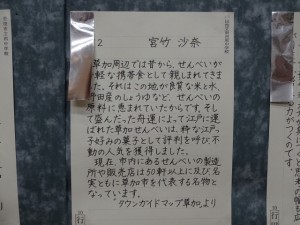 2
宮竹 沙奈
草加周辺では昔から、せんべいが
軽な携帯食として親しまれてき
た。それはこの地が良質な米と水、
野田産のしょうゆなど、せんべいの
原料に恵まれていたからです。そし
て盛んだった舟運によって江戸に運
ばれた草加せんべいは、粋な江戸
子好みの菓子として評判を呼び不
動の人気を獲得しました。
現在、市内にあるせんべいの製造
所や販売店は50軒以上に及び名
実ともに草加市を代表する名物と
なっています。
「タウンガイドマップ草加」より